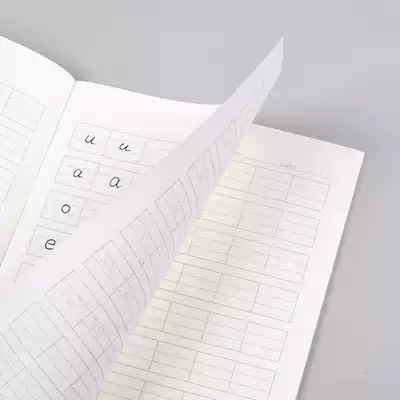 DATE
u u
a a
o
e